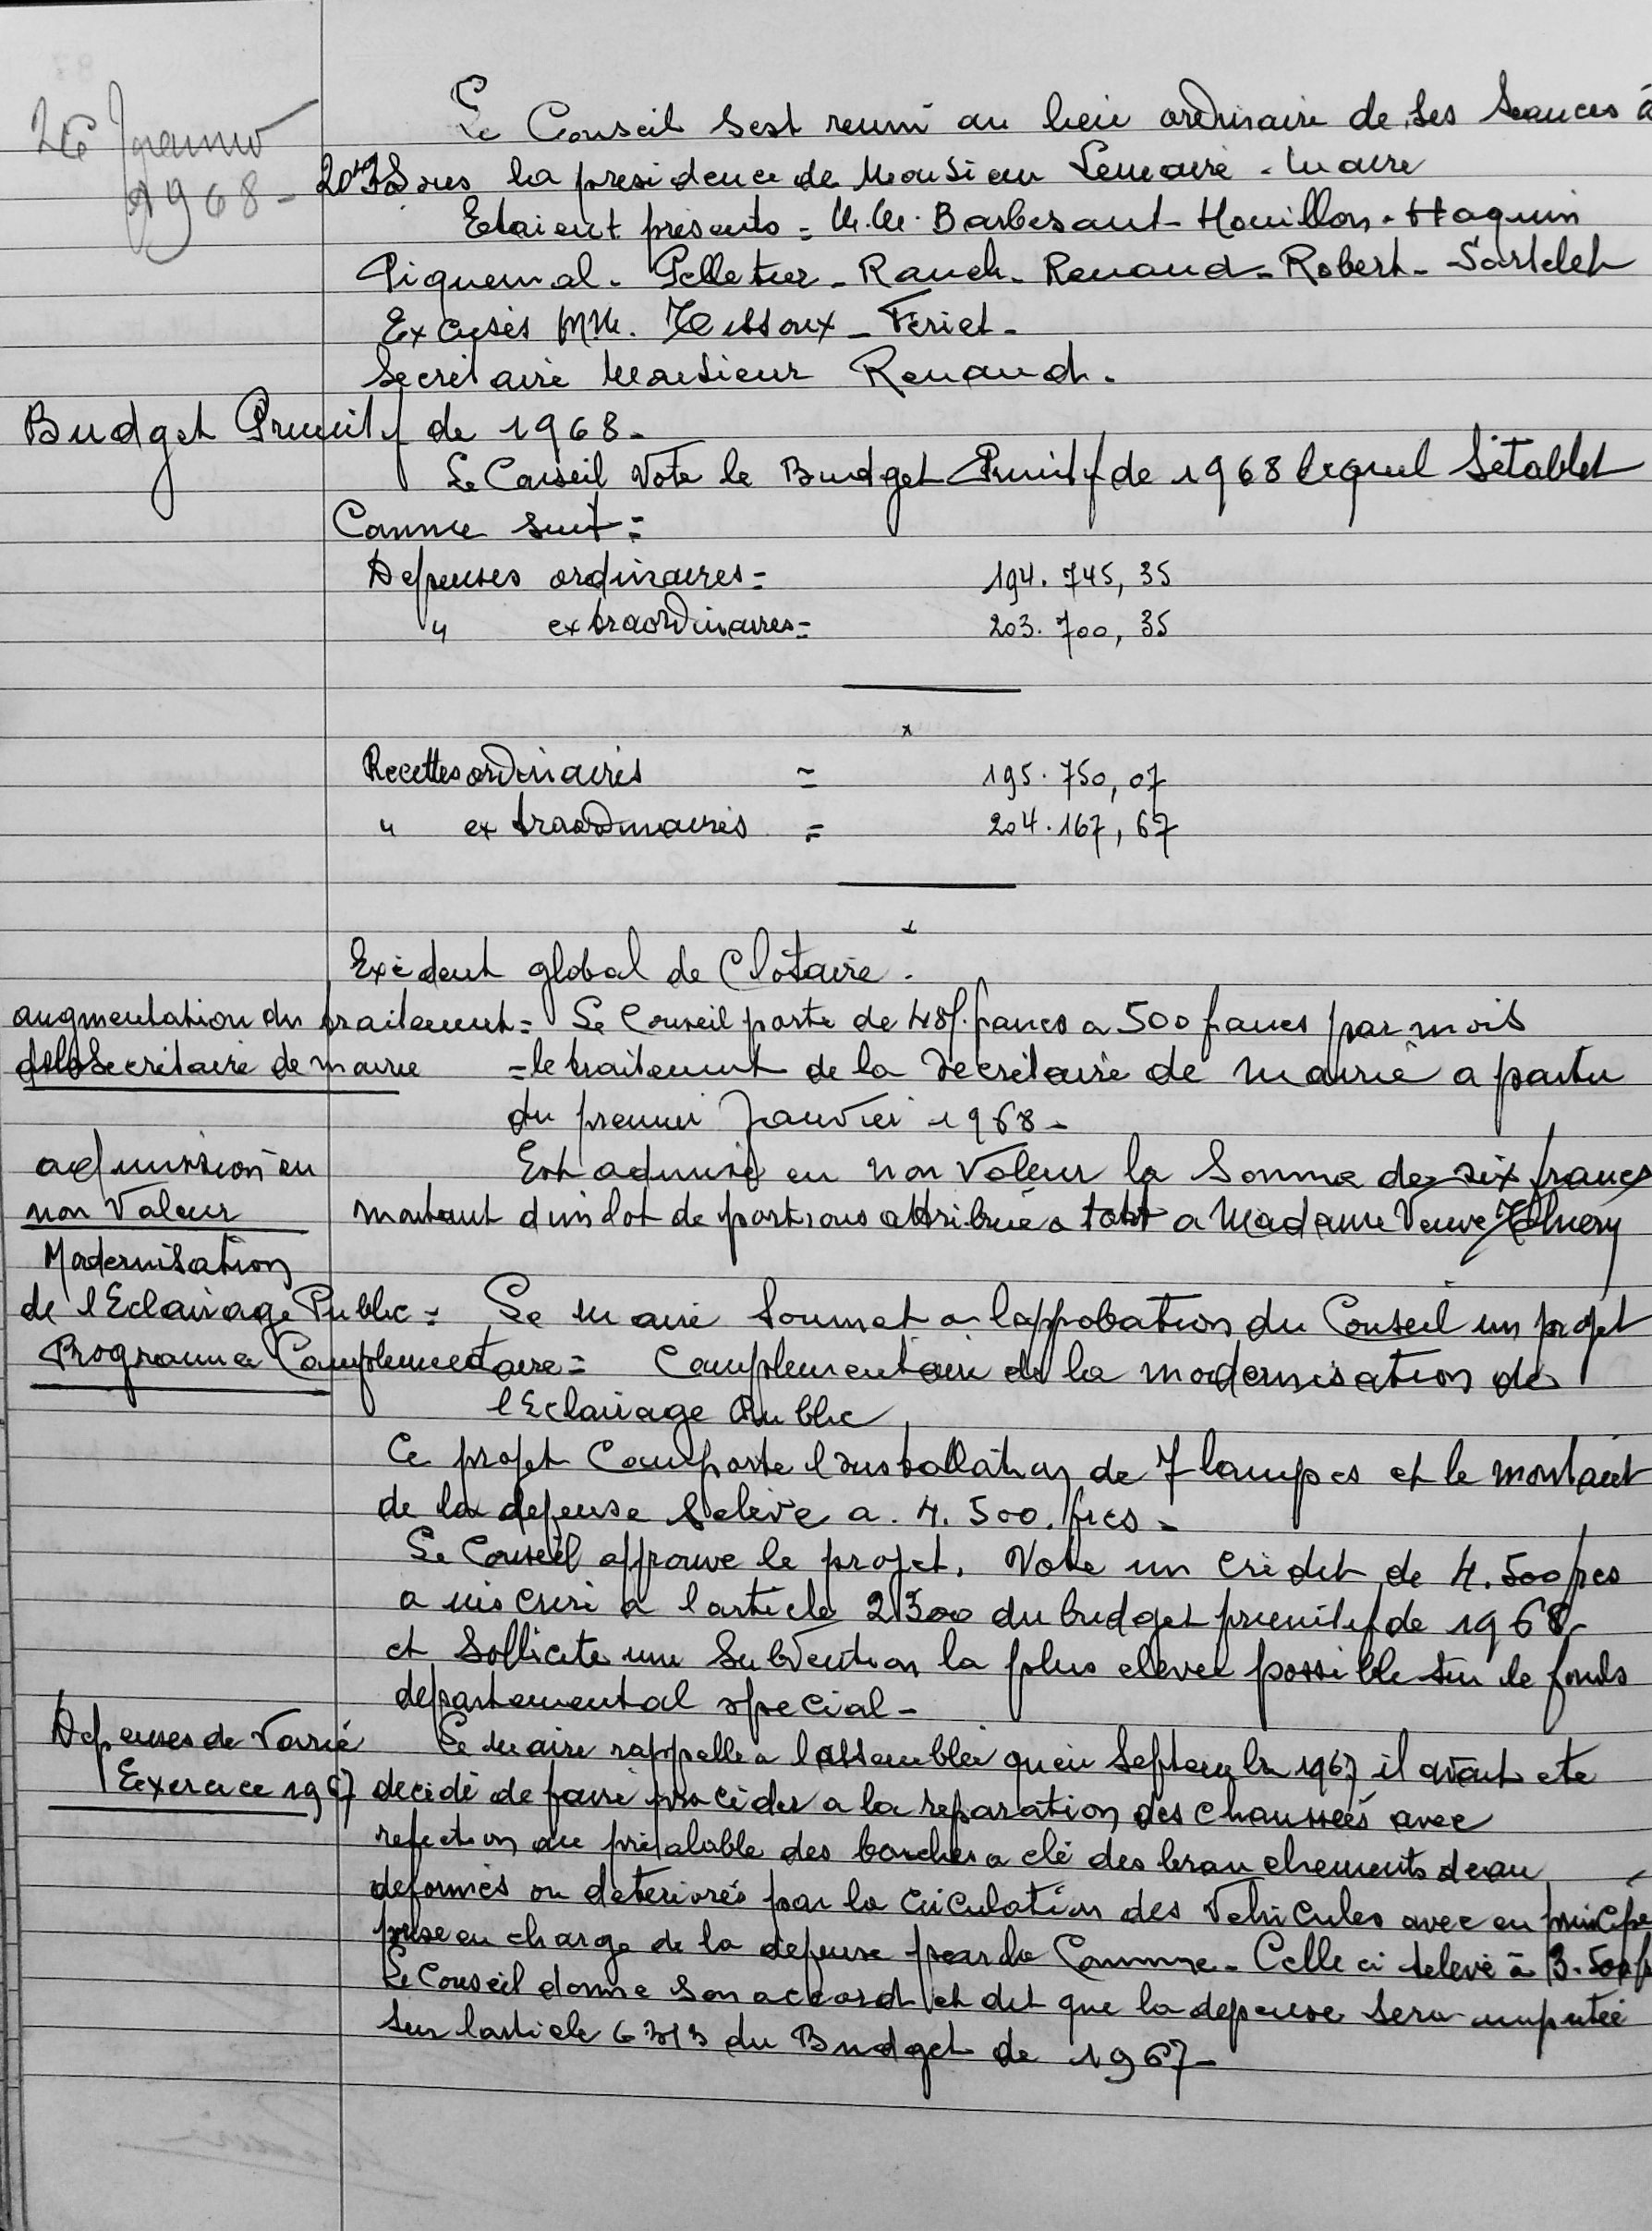 26 Janvier
1968 -
Le Conseil s'est reuni au lieu ordinaire de ses seances à
20h30 sous la presidence de Monsieur Lemaire - Maire
Etaient présents = M.M. Barbesant - Houillon - Haquin
Piquemal - Pelletier - Rauch - Renaud - Robert - Sartelet
Excusés MM. Tissoux - Feriet -
Secrétaire Monsieur Renaud.
Budget Primitif de 1968 -
Le Conseil vote le Budget Primitif de 1968 lequel s'établit
Comme suit =
Depenses ordinaires = 194.745,35
" extraordinaires = 203.700,35
Recettes ordinaires = 195.750,07
" extraordinaires = 204.167,67
Exèdent global de Clôture.
augmentation du traitement = Le Conseil porte de francs a 500 francs par mois
de la Secrétaire de mairie = le traitement de la Secrétaire de Mairie a partir
du premier Janvier 1968 -
admission en
non Valeur
Est admise en non Valeur la Somme de six francs
montant d'un lot de portions attribué a tort a Madame Veuve Thiery
Modernisation
de l'Eclairage Public = Le Maire soumet a l'approbation du Conseil un projet
Programme Complementaire = Complementaire de la modernisation de
l'Eclairage Public
Ce projet Comporte l'installation de 7 lampes et le montant
de la depense s'elève a . 4.500. frcs -
Le Conseil approuve le projet. Vote un crédit de 4.500 frcs
a inscrire a l'article 2300 du budget primitif de 1968 -
et sollicite une Subvention la plus elevée possible sur le fonds
departemental special -
Depenses de Voirie
Exercice 1967
Le Maire rappelle a l'assemblée qu'en Septembre 1967 il avait ete
decidé de faire procéder a la reparation des chaussées avec
refection au préalable des bouches a clé des branchements d'eau
deformés ou déteriorés par la circulation des Vehicules avec en principe
prise en charge de la depense par la Commune - Celle ci s'elève à 3.500 f
Le Conseil donne son accord et dit que la depense sera imputée
sur l'article 6313 du Budget de 1967 -